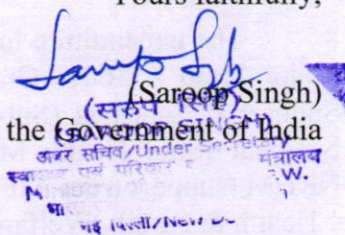 Yours faithfully,
(Saroop Singh)
(सरूप सिंह)
the Government of India
(SAROOP SINGH)
अवर सचिव/Under Secretary
स्वास्थ्य एवं परिवार मंत्रालय
W.
नई दिल्ली/New